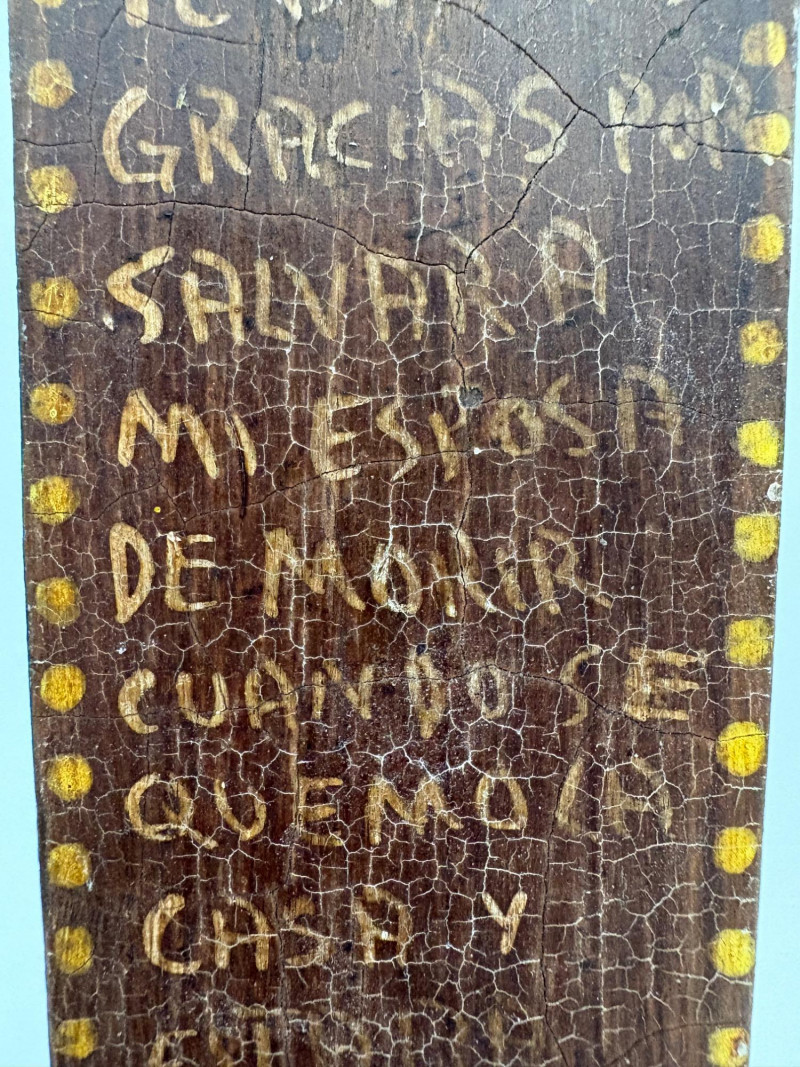 GRACIAS POR
SALVAR A
MI ESPOSA
DE MORIR
CUANDO SE
QUEMO LA
CASA Y